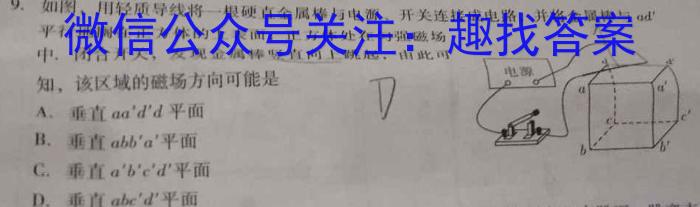 9. 如图，用轻质导线将一根硬直金属棒与电源、开关连接成电路，并将金属棒与ad'
微信公众号关注：趣找答案
中.闭合开关，发现金属棒竖直向上跳起，由此可
知，该区域的磁场方向可能是
A. 垂直aa'd'd平面
B. 垂直abb'a'平面
C. 垂直a'b'c'd'平面
D. 垂直abc'd'平面
D
电源
a
a'
c
c'
b
b'